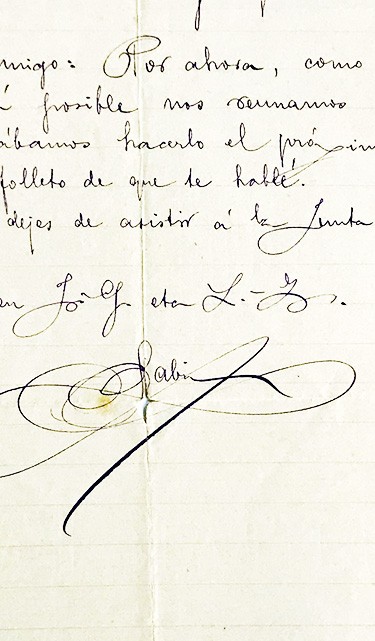 migo: Por ahora, como
á posible nos reunamos
ábamos hacerlo el próxim
folleto de que te hablé.
dejes de asistir á la Junta
en J.-G. eta L.-Z.
Sabin